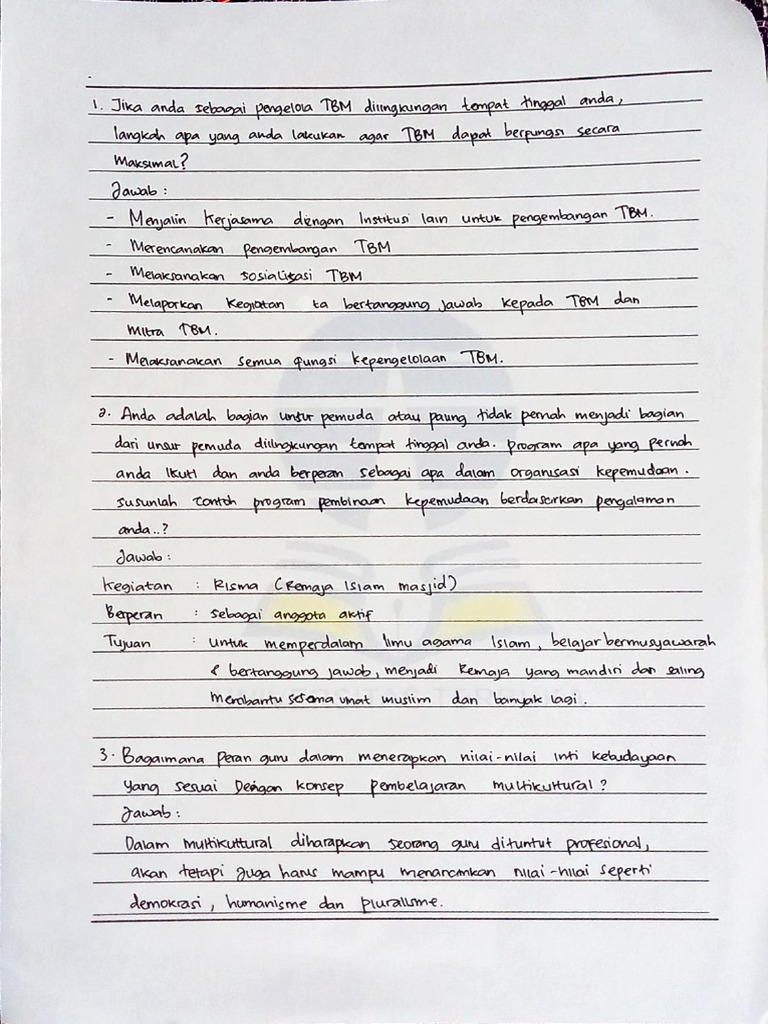 1. Jika anda sebagai pengelola TBM dilingkungan tempat tinggal anda,
langkah apa yang anda lakukan agar TBM dapat berpungsi secara
Maksimal?
Jawab :
- Menjalin Kerjasama dengan Institusi lain untuk pengembangan TBM.
- Merencanakan pengembangan TBM
- Melaksanakan sosialisasi TBM
- Melaporkan Kegiatan ta bertanggung jawab kepada TBM dan
mitra TBM.
- Melaksanakan semua fungsi kepengelolaan TBM.
2. Anda adalah bagian unsur pemuda atau paung tidak pernah menjadi bagian
dari unsur pemuda dilingkungan tempat tinggal anda. program apa yang pernah
anda Ikuti dan anda berperan sebagai apa dalam organisasi kepemudaan.
susunlah contoh program pembinaan kepemudaan berdasarkan pengalaman
anda..?
Jawab :
Kegiatan : Risma (Remaja Islam masjid)
Berperan : sebagai anggota aktif
Tujuan : untuk memperdalam Ilmu agama Islam, belajar bermusyawarah
& bertanggung jawab, menjadi Remaja yang mandiri dan saling
membantu sesama umat muslim dan banyak lagi.
3. Bagaimana peran guru dalam menerapkan nilai-nilai inti kebudayaan
yang sesuai Dengan konsep pembelajaran multikultural?
Jawab :
Dalam multikultural diharapkan seorang guru dituntut profesional,
akan tetapi juga harus mampu menanamkan nilai-nilai seperti
demokrasi, humanisme dan pluralisme.